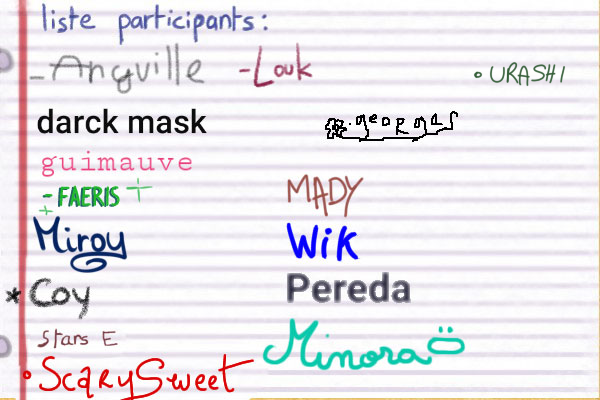 liste participants:
-Angville -Louk ° URASHI
darck mask .georgas
guimauve
-FAERIS + MADY
Miroy Wik
*Coy Pereda
Stars E Minora
°ScarySweet